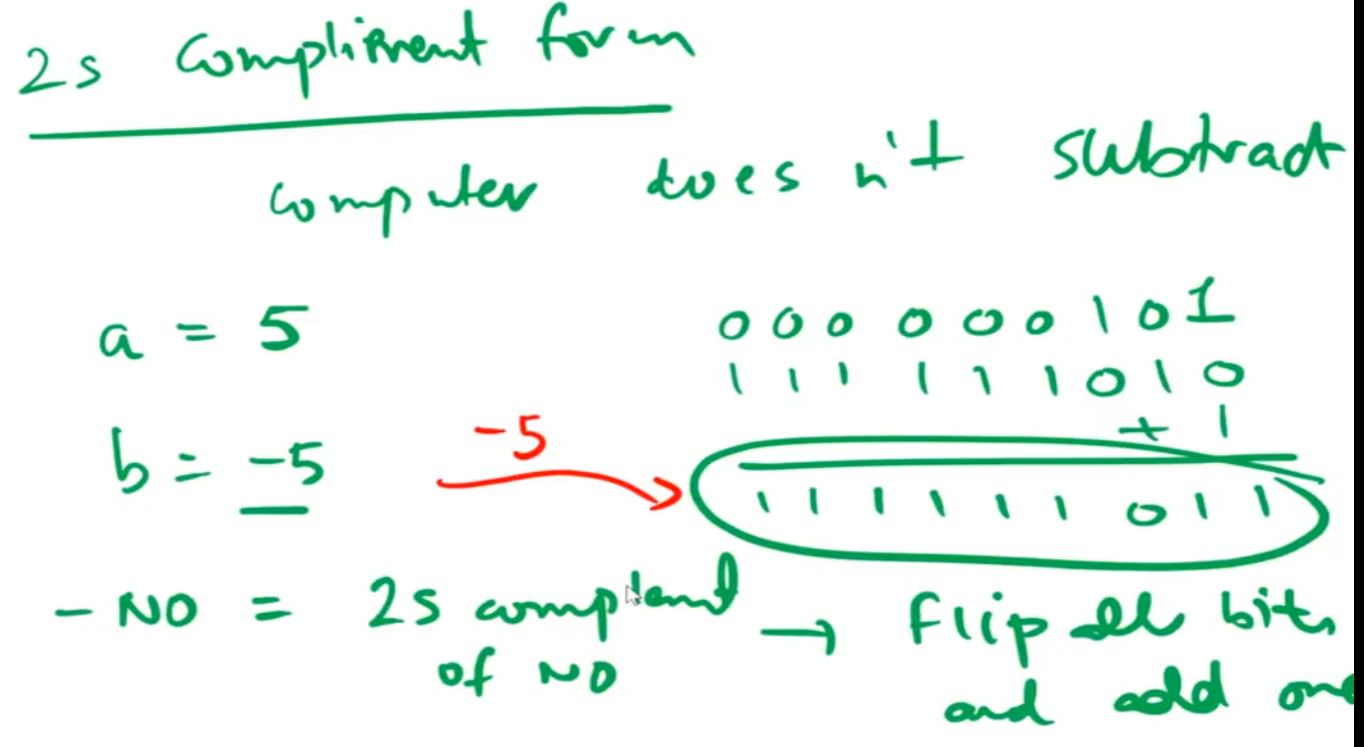 2s Compliment form
computer does n't subtract
a = 5
0 0 0 0 0 0 1 0 1
1 1 1 1 1 1 0 1 0
+ 1
b = -5
-5
1 1 1 1 1 1 0 1 1
- NO = 2s complemt → flip all bits
of NO and add one